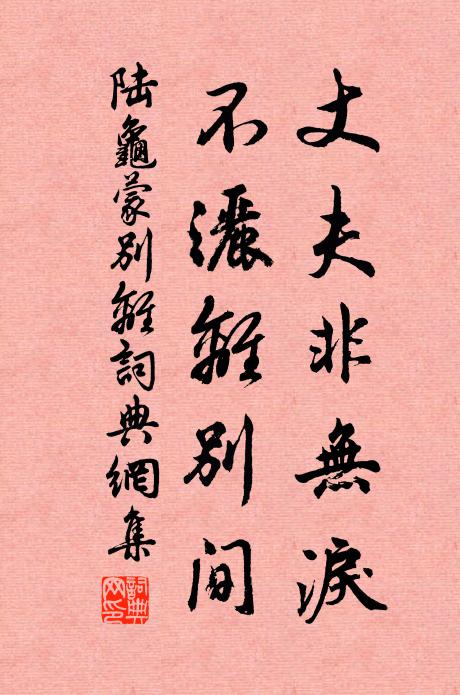 丈夫非無淚
不灑離別間
陸龜蒙別離詞典網集
詞典网印